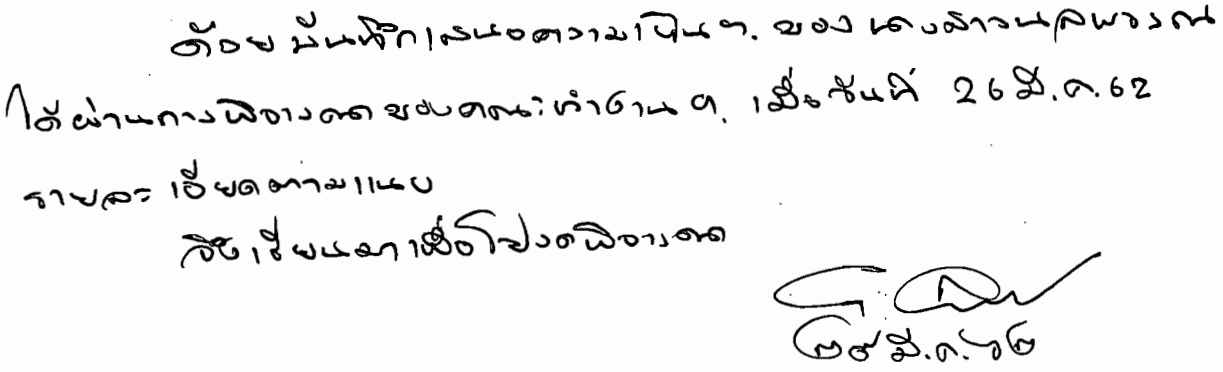 ด้วย บันทึกเสนอความเป็นฯ ของ นางสาวนุสพวรรณ
ได้ผ่านการพิจารณาของคณะทำงาน ฯ เมื่อวันที่ 26 มี.ค.62
รายละเอียดตามแนบ
จึงเรียนมาเพื่อโปรดพิจารณา
๒๙ มี.ค. ๖๒